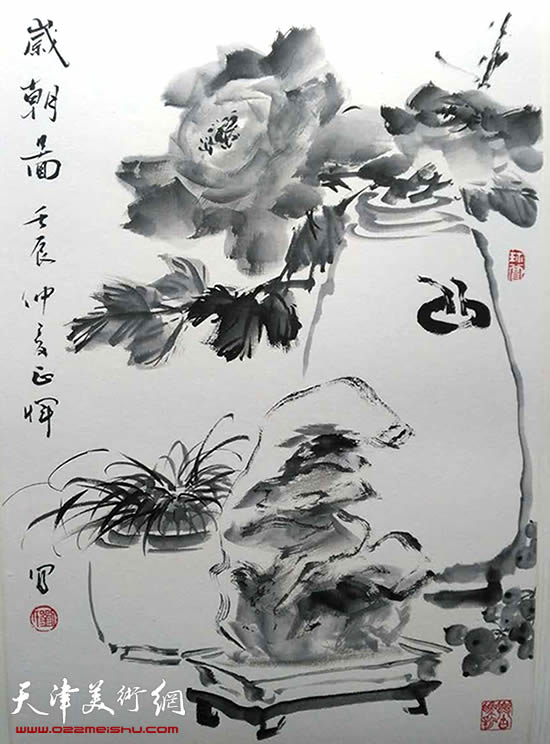 歲朝圖
壬辰仲夏正恽
写
天津美術網
www.022meishu.com